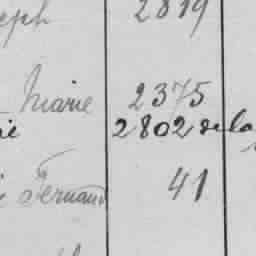 eph 2819
Marie 2375
ie 2802 de la
Fernand 41